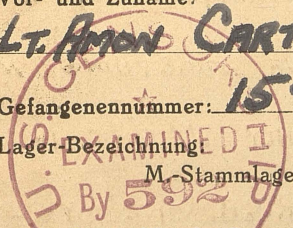 Vor- und Zuname:
LT. AMON CART
Gefangenennummer: 15
Lager-Bezeichnung:
M.-Stammlage
U.S. CENSOR
EXAMINED
By 592